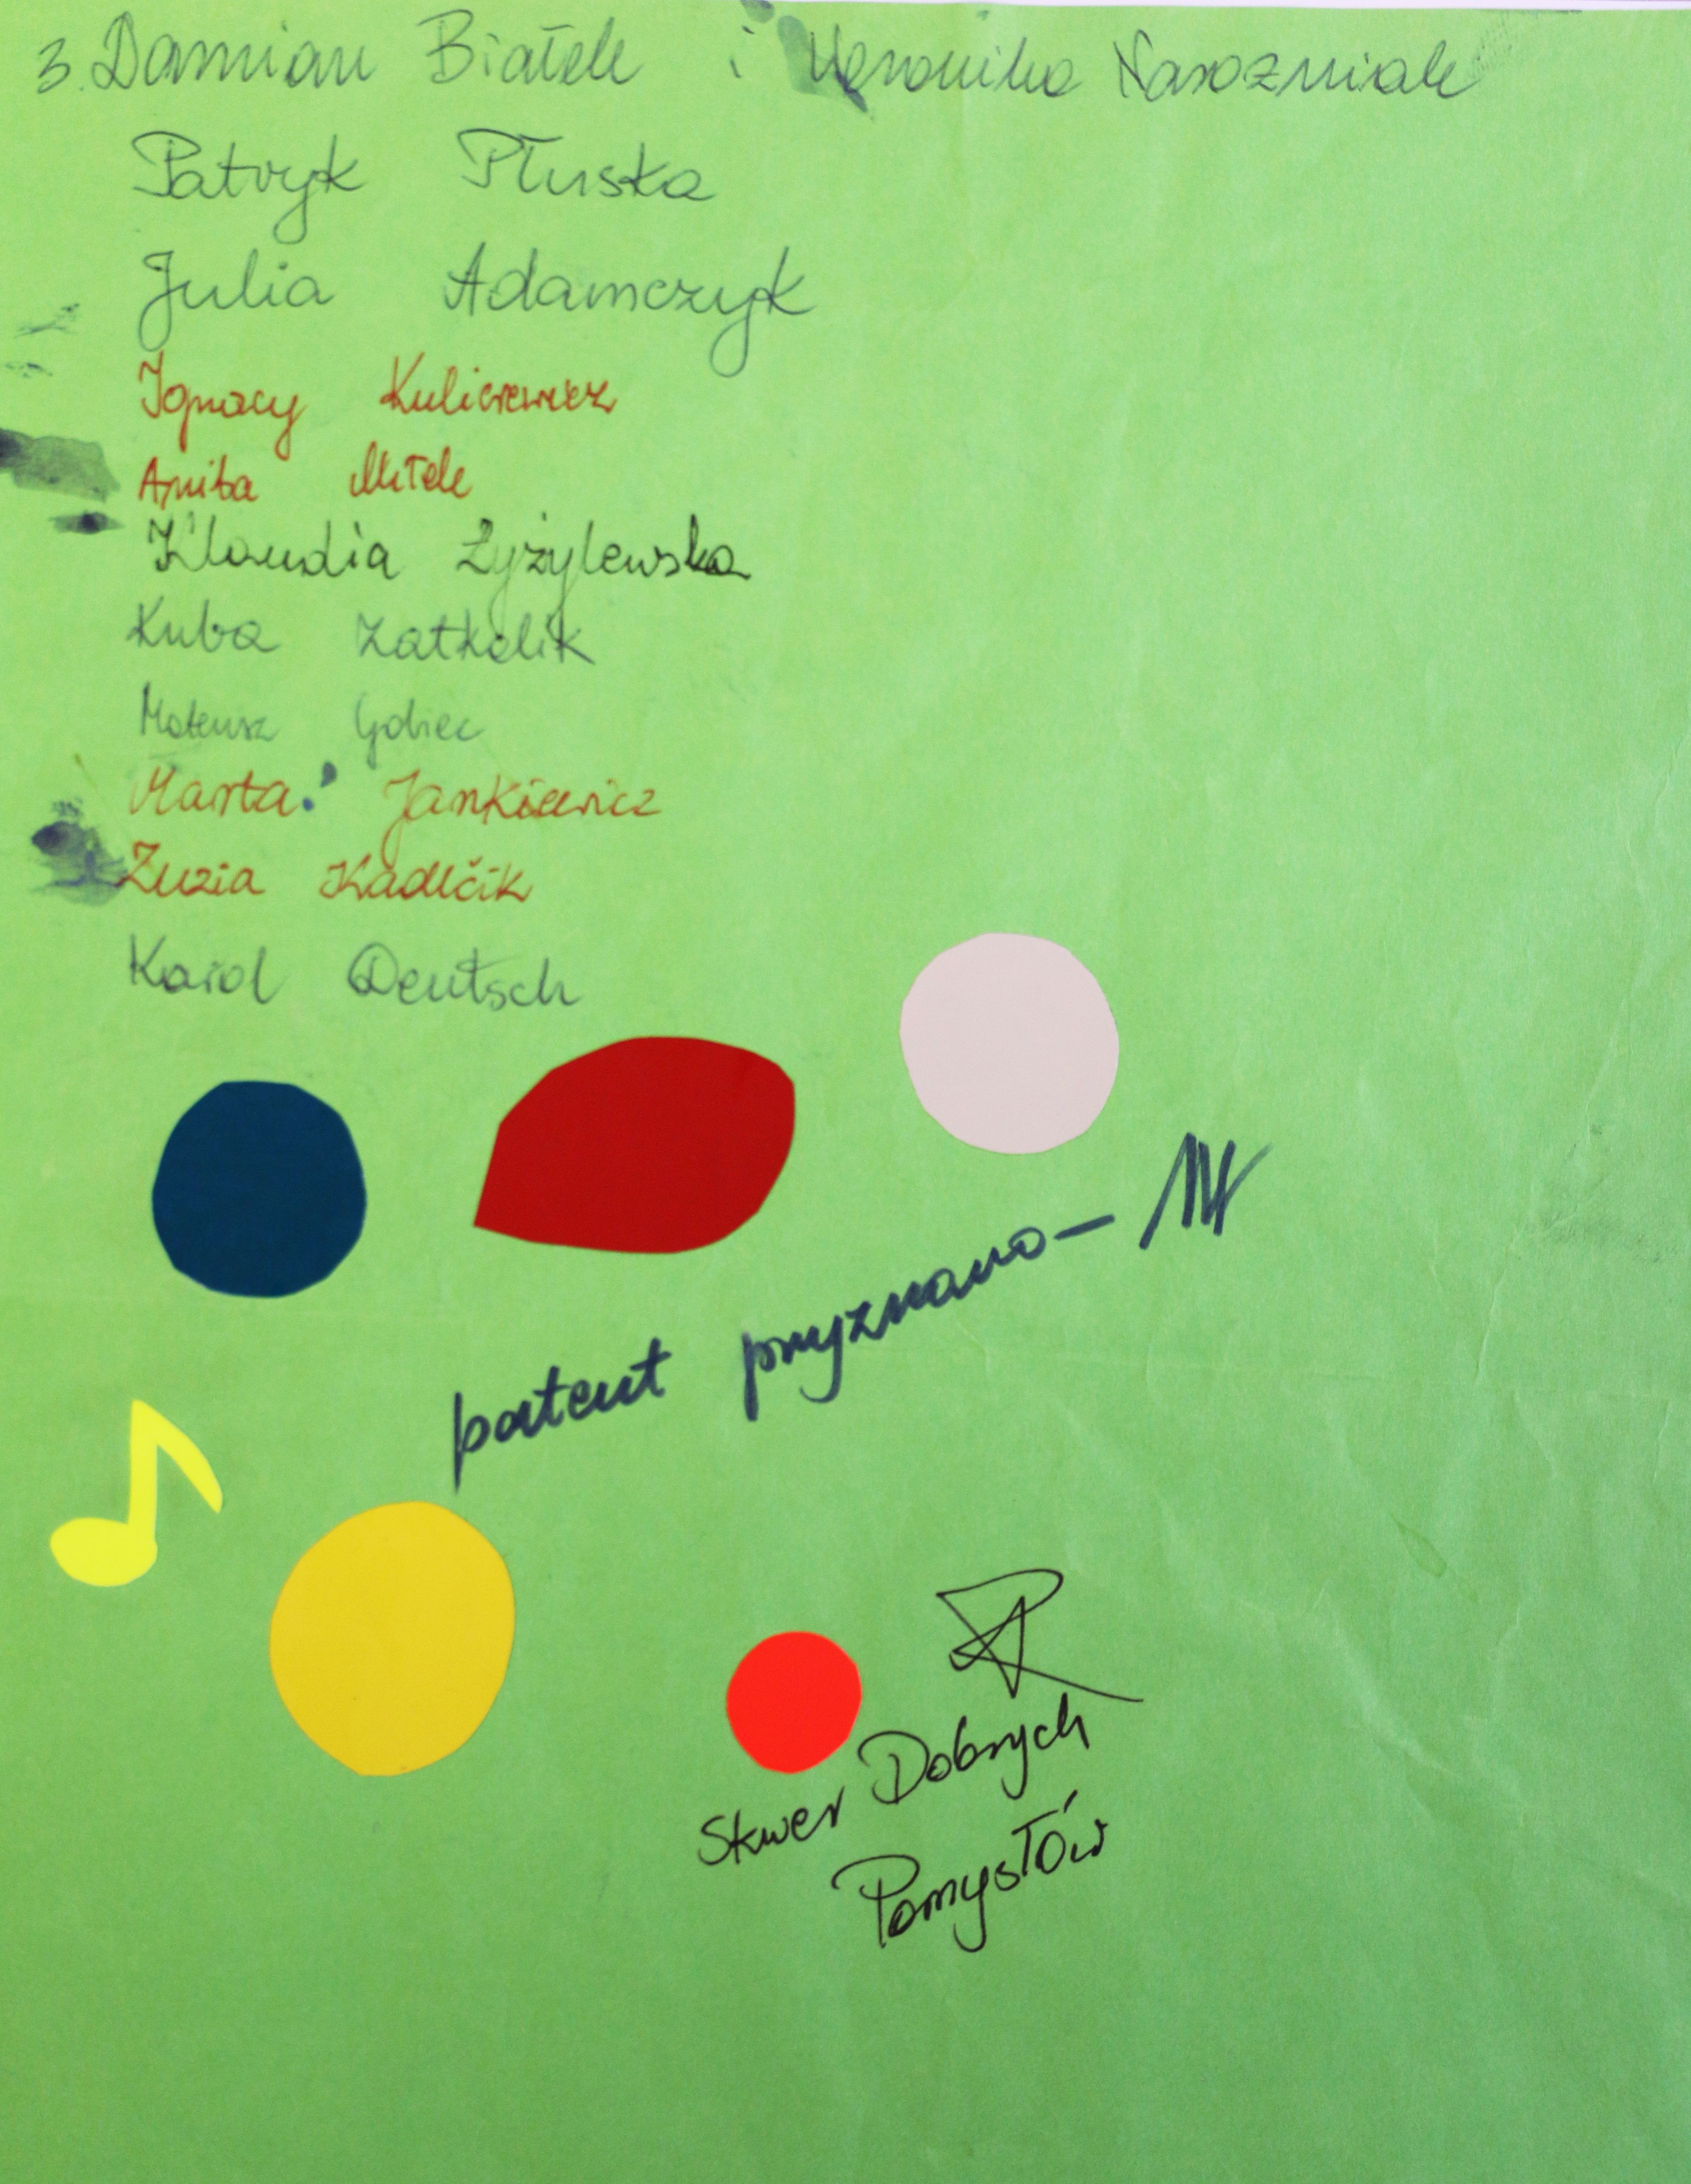 3. Damian Białek i Weronika Narozniak
Patryk Płuska
Julia Adamczyk
Ignacy Kulicrewicz
Anita Mitek
Klaudia Łyżylewska
Kuba Zatkalik
Mateusz Gobiec
Marta Jankiewicz
Zuzia Kadlčik
Karol Deutsch
patent przyznano –
Skwer Dobrych
Pomysłów